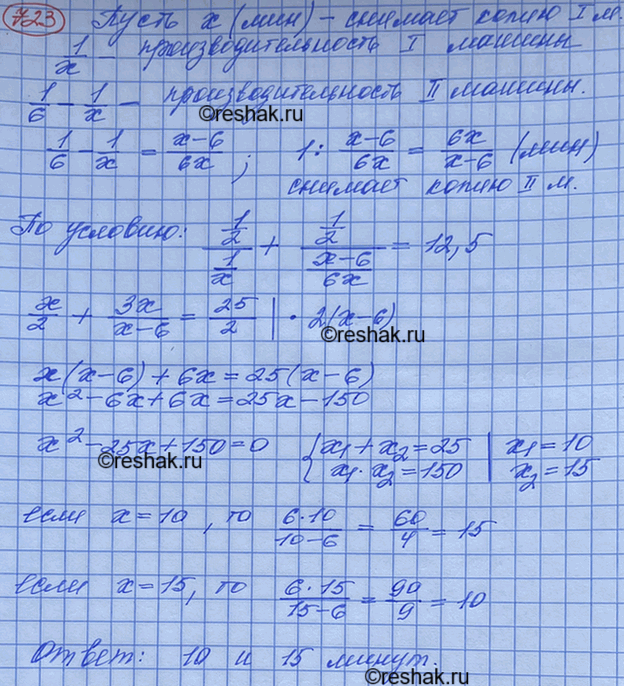 723 Пусть x (мин) - снимает копию I м.
1/x - производительность I машины
1/6 - 1/x - производительность II машины.
©reshak.ru
1/6 - 1/x = (x-6)/(6x) ; 1 : (x-6)/(6x) = (6x)/(x-6) (мин)
снимает копию II м.
По условию: (1/2)/(1/x) + (1/2)/((x-6)/(6x)) = 12,5
x/2 + (3x)/(x-6) = 25/2 | · 2(x-6)
©reshak.ru
x(x-6) + 6x = 25(x-6)
x² - 6x + 6x = 25x - 150
x² - 25x + 150 = 0 { x₁ + x₂ = 25 | x₁ = 10
x₁ · x₂ = 150 | x₂ = 15
©reshak.ru
если x = 10, то (6·10)/(10-6) = 60/4 = 15
если x = 15, то (6·15)/(15-6) = 90/9 = 10
Ответ: 10 и 15 минут.
©reshak.ru